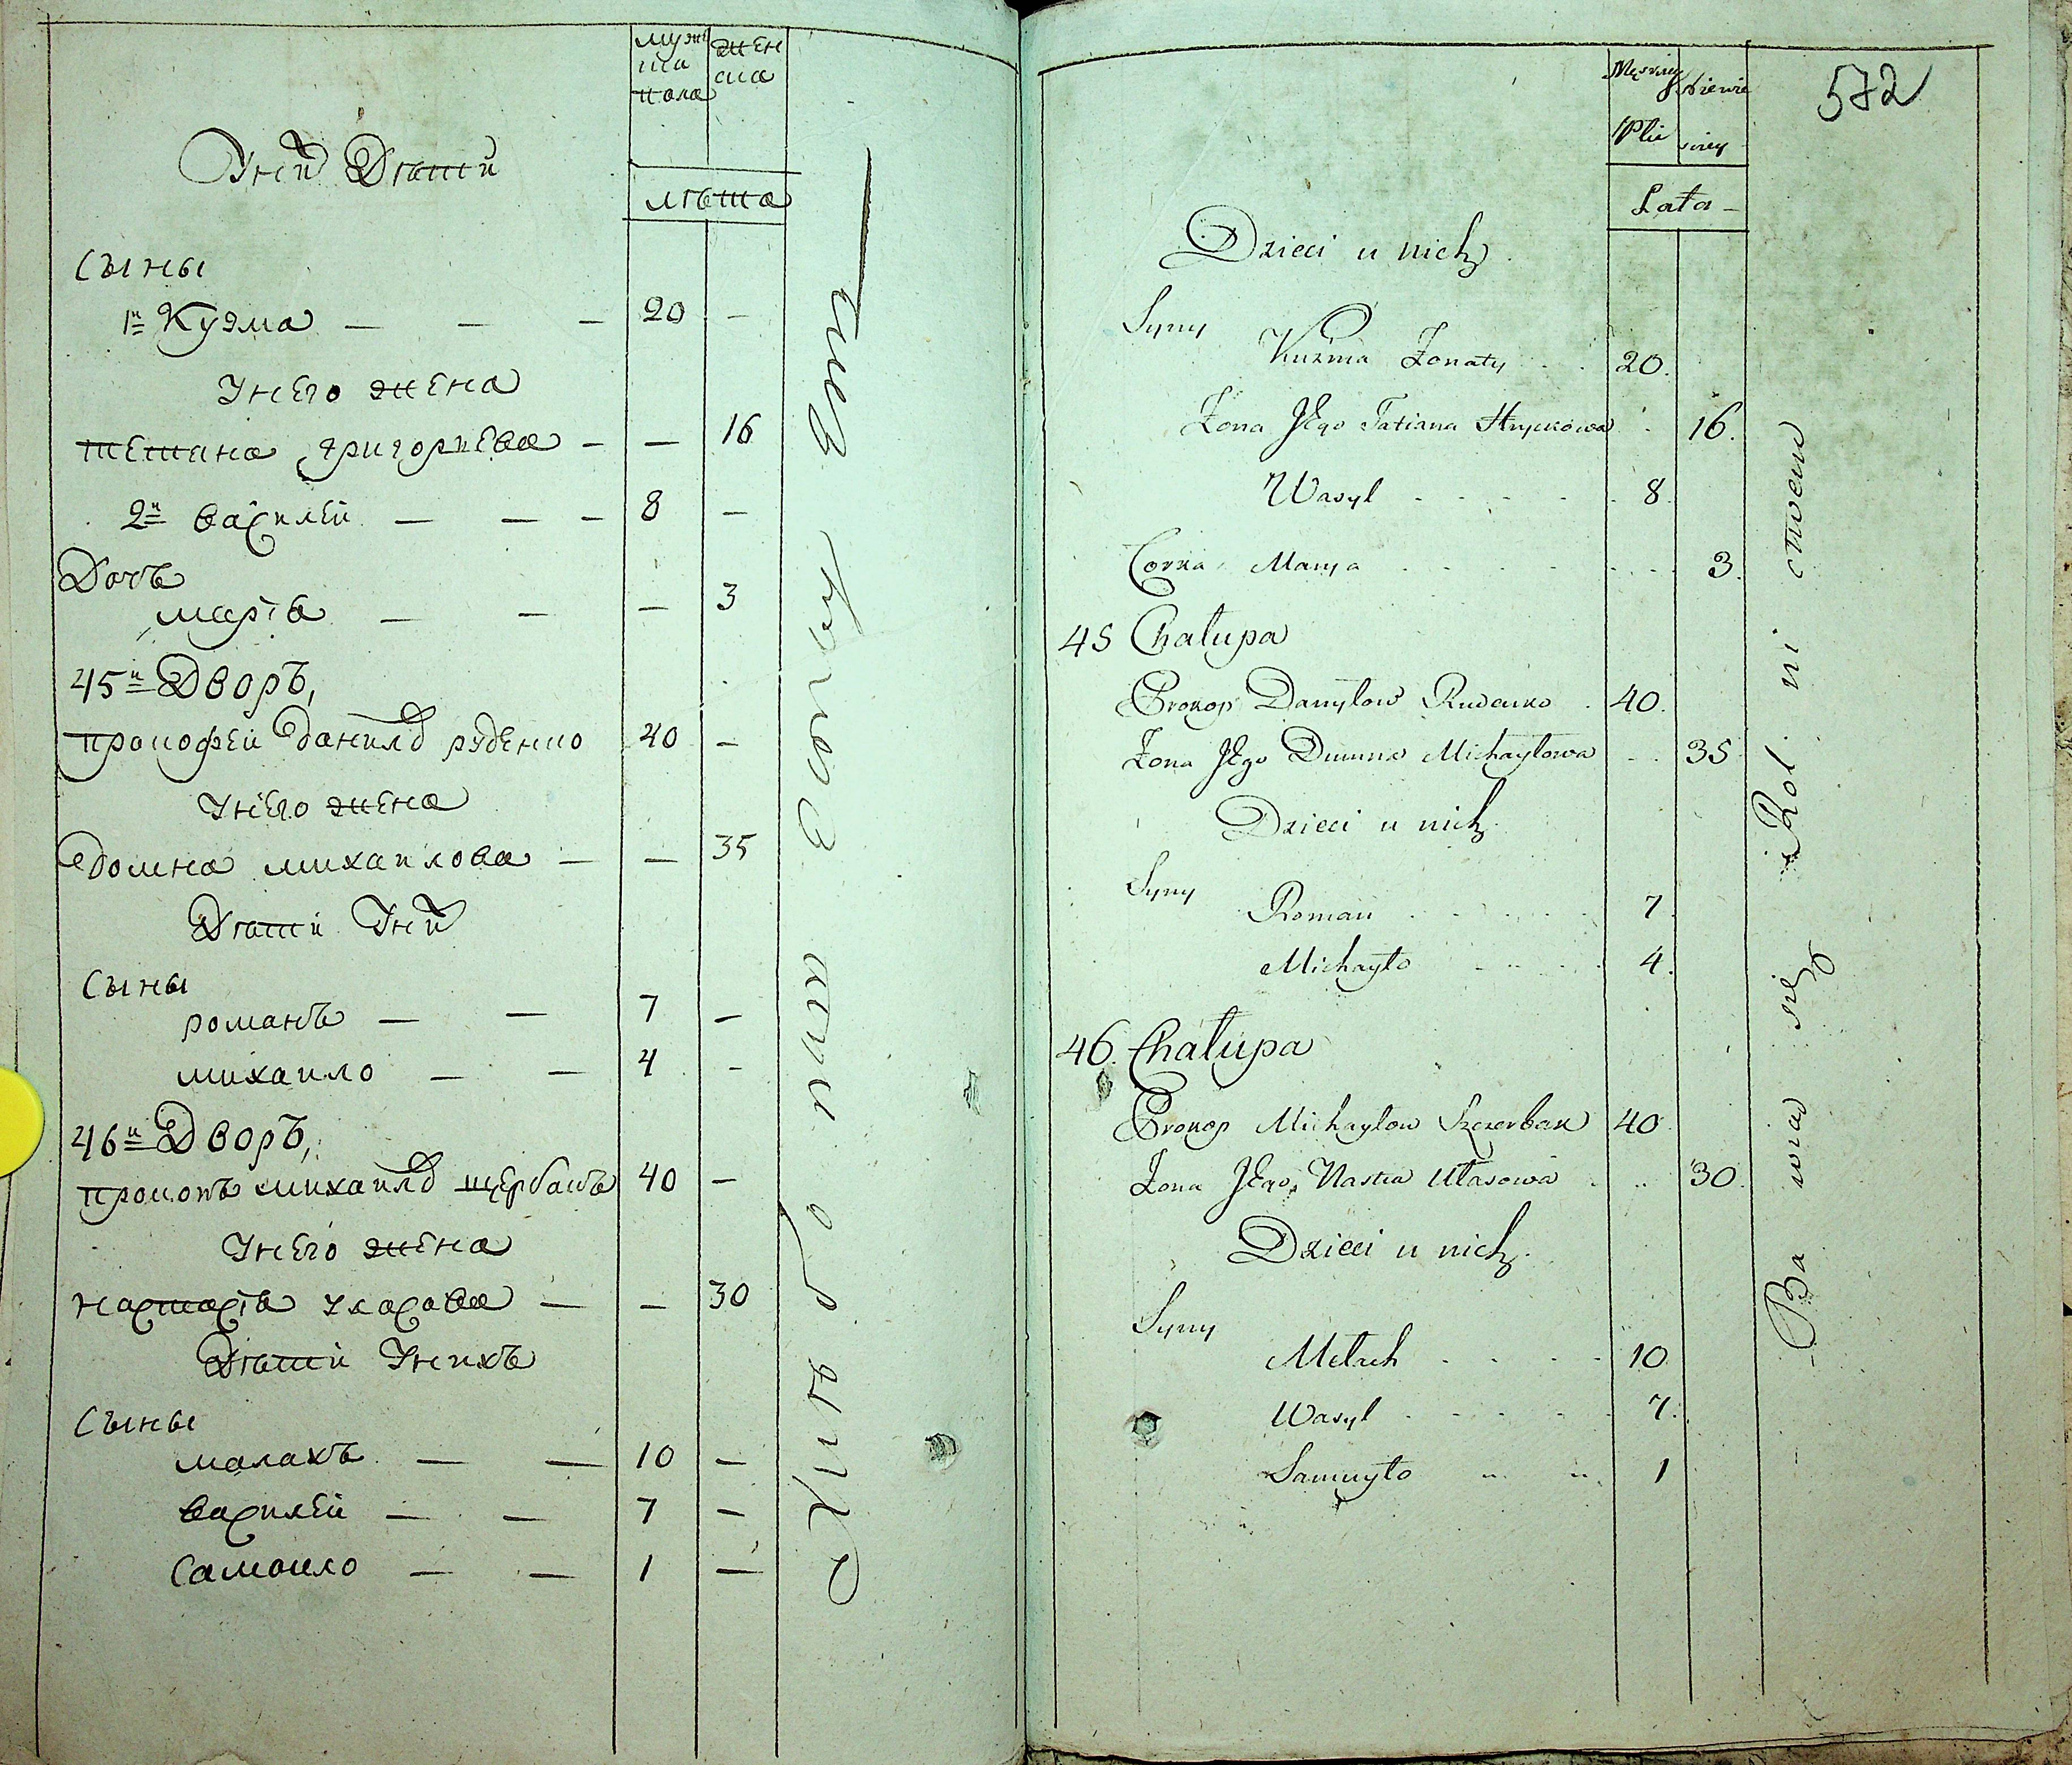 мужска пола
женска
лѣта
У ней Дѣти
Сыны
1й Кузма — — — 20 —
У него жена
тетиана григориева — — 16
2й василей — — — 8 —
Дочь
марїя — — — 3
45й Дворъ,
прокофей данилов руденко 40 —
У него жена
домна михаилова — — 35
Дѣти У ней
Сыны
романъ — — 7 —
михаило — — 4 —
46й Дворъ,
прокопъ михаилов щербакъ 40 —
У него жена
настасїя уласова — — 30
Дѣти У нихъ
Сыны
малахъ — — 10 —
василей — — 7 —
Самоило — — 1 —
572
Męskiey Płci
Niewieściey
Lata
Dzieci u nich
Syny
Kuźma Żonaty 20.
Żona Jego Tatiana Hryckowa 16.
Wasyl 8
Corka Marya 3.
45 Chałupa
Prokop Danyłow Rudenko 40.
Żona Jego Dumna Michayłowa 35
Dzieci u nich
Syny
Roman 7
Michayło 4.
46. Chałupa
Prokop Michayłow Szczerbak 40
Żona Jego Nastia Ułasowa 30.
Dzieci u nich.
Syny
Mełach 10
Wasyl 7.
Samuyło 1
Ba wią się Rol ni ctwem